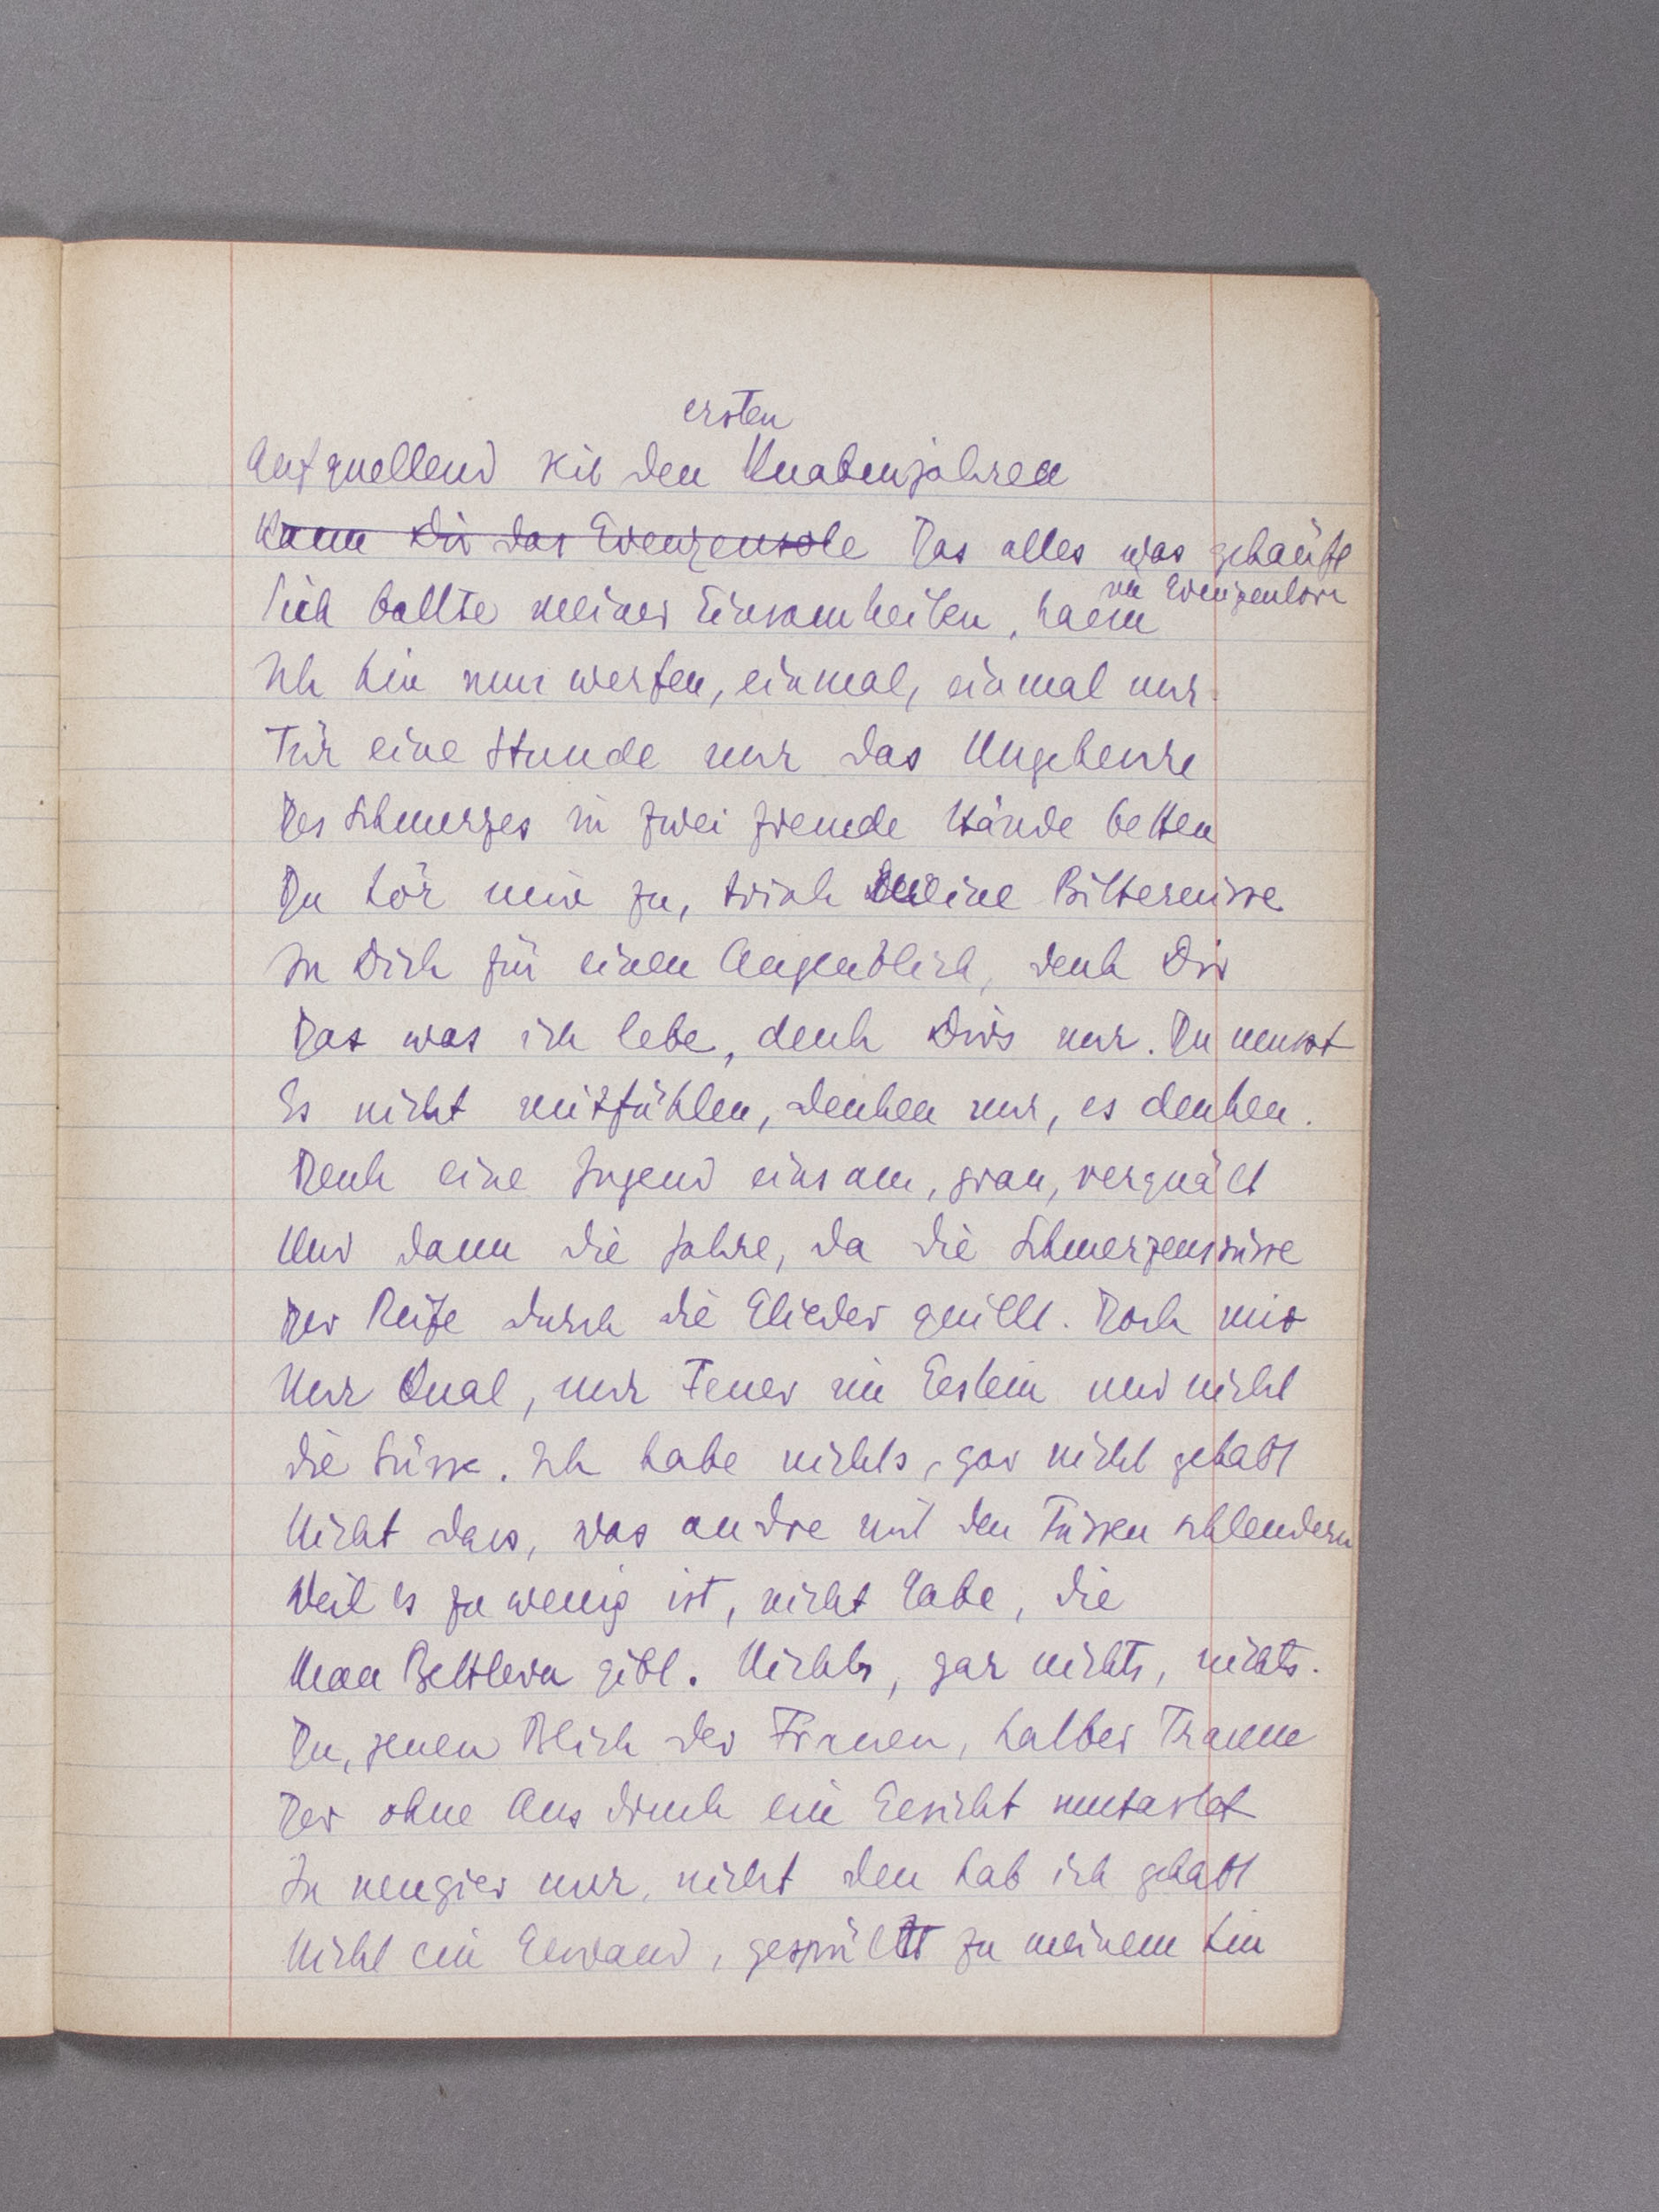 ersten
Aufquellend seit den Knabenjahren
Kann Dir das Grenzenlose Das alles was gehäuft
Sich ballte meiner Einsamheiten, kann
ins Grenzenlose
Ich hin nun werfen, einmal, einmal nur.
Für eine Stunde nur das Ungeheure
Des Schmerzes in zwei fremde Hände betten
Du hör mir zu, trink meine Bitternisse
In Dich für einen Augenblick, denk Dir
Das was ich lebe, denk Dirs nur. Du musst
Es nicht mitfühlen, denken nur, es denken.
Denk eine Jugend einsam, grau, vergrält
Und dann die Jahre, da die Schmerzenssüsse
Der Reife durch die Glieder quillt. Doch mir
Nur Qual, nur Feuer im Gestein und nicht
die Süsse. Ich habe nichts, gar nicht gehabt
Nicht dass, was andre mit den Füssen schlendern
Weil es zu wenig ist, nicht Gabe, die
Man Bettlern gibt. Nichts, gar nichts, nichts.
Du, jenen Blick der Frauen, halber Traum
Der ohne Ausdruck ein Gesicht umtastet
In neugier nur, nicht den hab ich gehabt
Nicht ein Gewand, gespült zu meinem hin